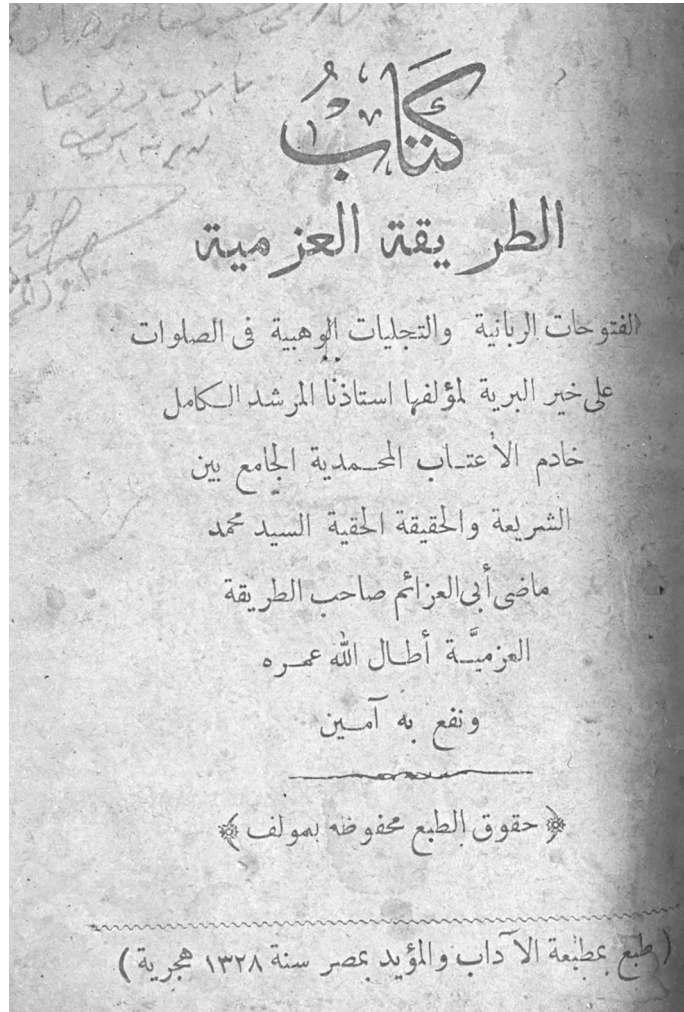 كتاب
الطريقة العزمية
الفتوحات الربانية والتجليات الوهبية فى الصلوات
على خير البرية لمؤلفها استاذنا المرشد الكامل
خادم الأعتاب المحمدية الجامع بين
الشريعة والحقيقة الحقية السيد محمد
ماضى أبى العزائم صاحب الطريقة
العزميَّة أطال الله عمره
ونفع به آمين
﴿ حقوق الطبع محفوظه بمولف ﴾
( طبع بمطبعة الآداب والمؤيد بمصر سنة ١٣٢٨ هجرية )